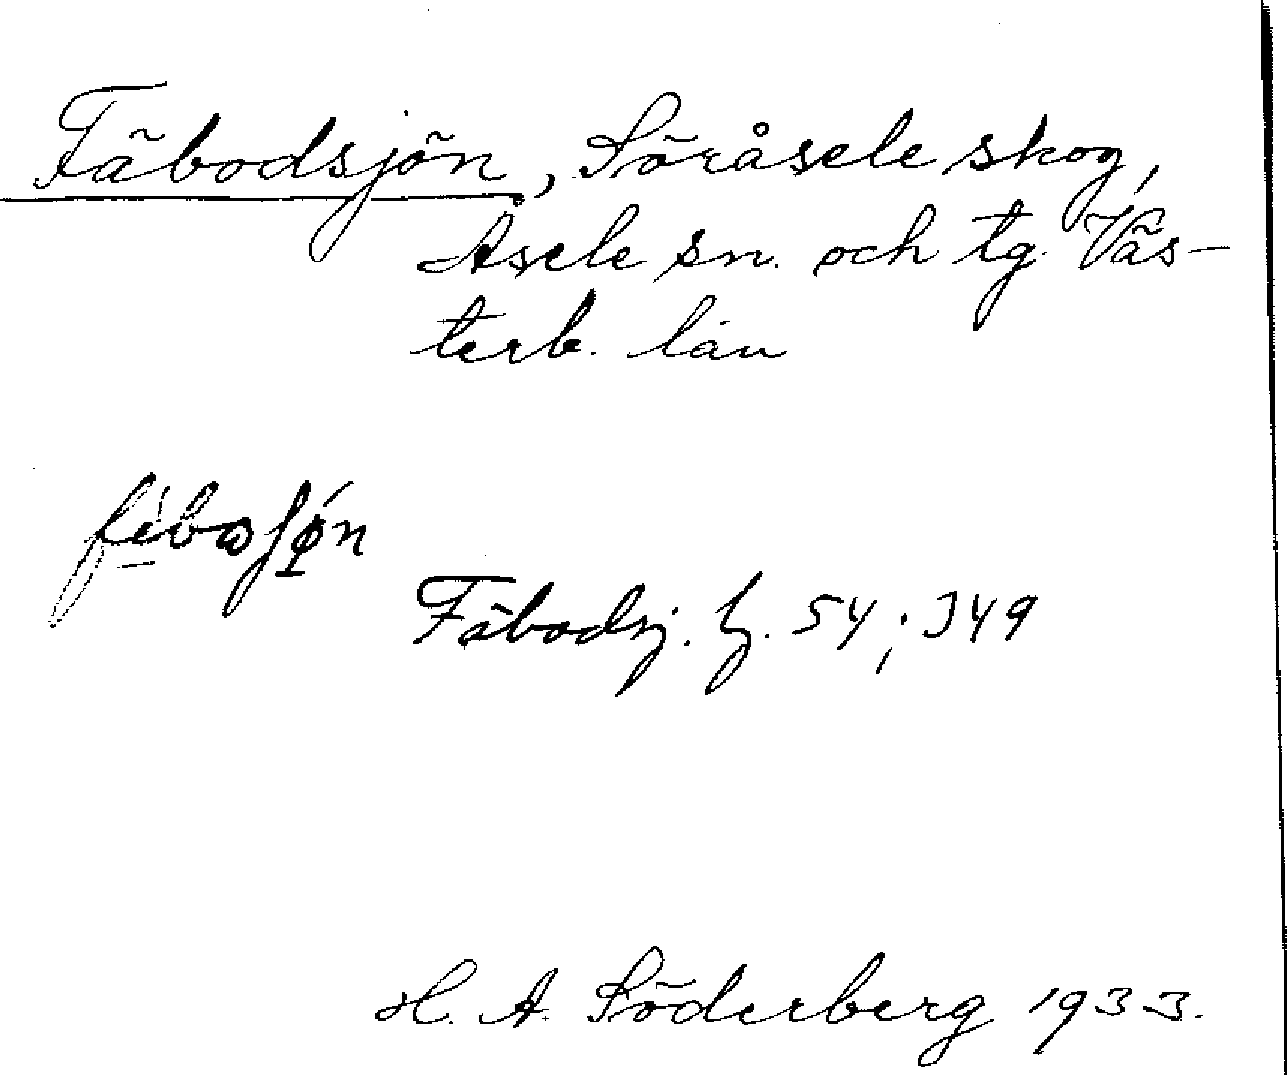 Fäbodsjön, Söråsele skog,
Åsele sn. och tg. Väs-
terb. län
Fäbodsj. h. 54; 349
H. A. Söderberg 1933.